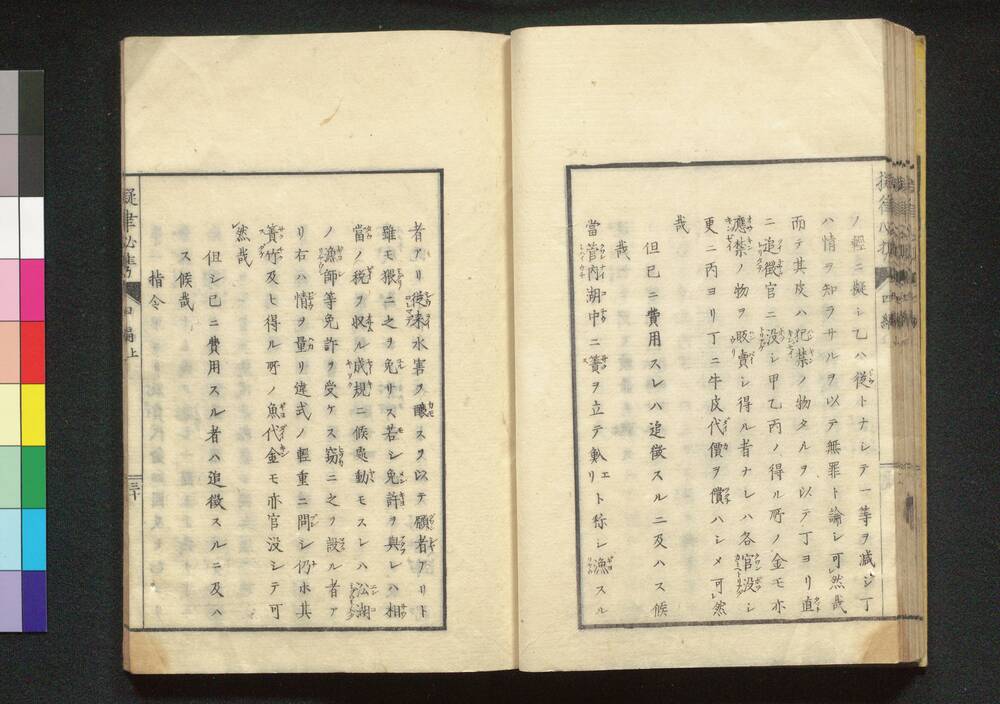 ノ輕ニ擬シ乙ハ從トナシテ一等ヲ減シ丁
ハ情ヲ知ラサルヲ以テ無罪ト論シ可然哉
而テ其皮ハ犯禁ノ物タルヲ以テ丁ヨリ直
ニ追徴官ニ没シ甲乙丙ノ得ル所ノ金モ亦
應禁ノ物ヲ販賣シ得ル者ナレハ各官没シ
更ニ丙ヨリ丁ニ牛皮代價ヲ償ハシメ可然
哉
但已ニ費用スレハ追徴スルニ及ハス候
哉
當管内湖中ニ簀ヲ立テ魞リト称シ漁スル
者アリ從来水害ヲ醸スヲ以テ願者アリト
雖モ猥ニ之ヲ免リス若シ免許ヲ與レハ相
當ノ税ヲ収ル成規ニ候處動モスレハ沿湖
ノ漁師等免許ヲ受ケス窃ニ之ヲ設ル者ア
リ右ハ情ヲ量リ違式ノ輕重ニ問シ仍ホ其
簀竹及ヒ得ル所ノ魚代金モ亦官没シテ可
然哉
但シ已ニ費用スル者ハ追徴スルニ及ハ
ス候哉
指令
三十